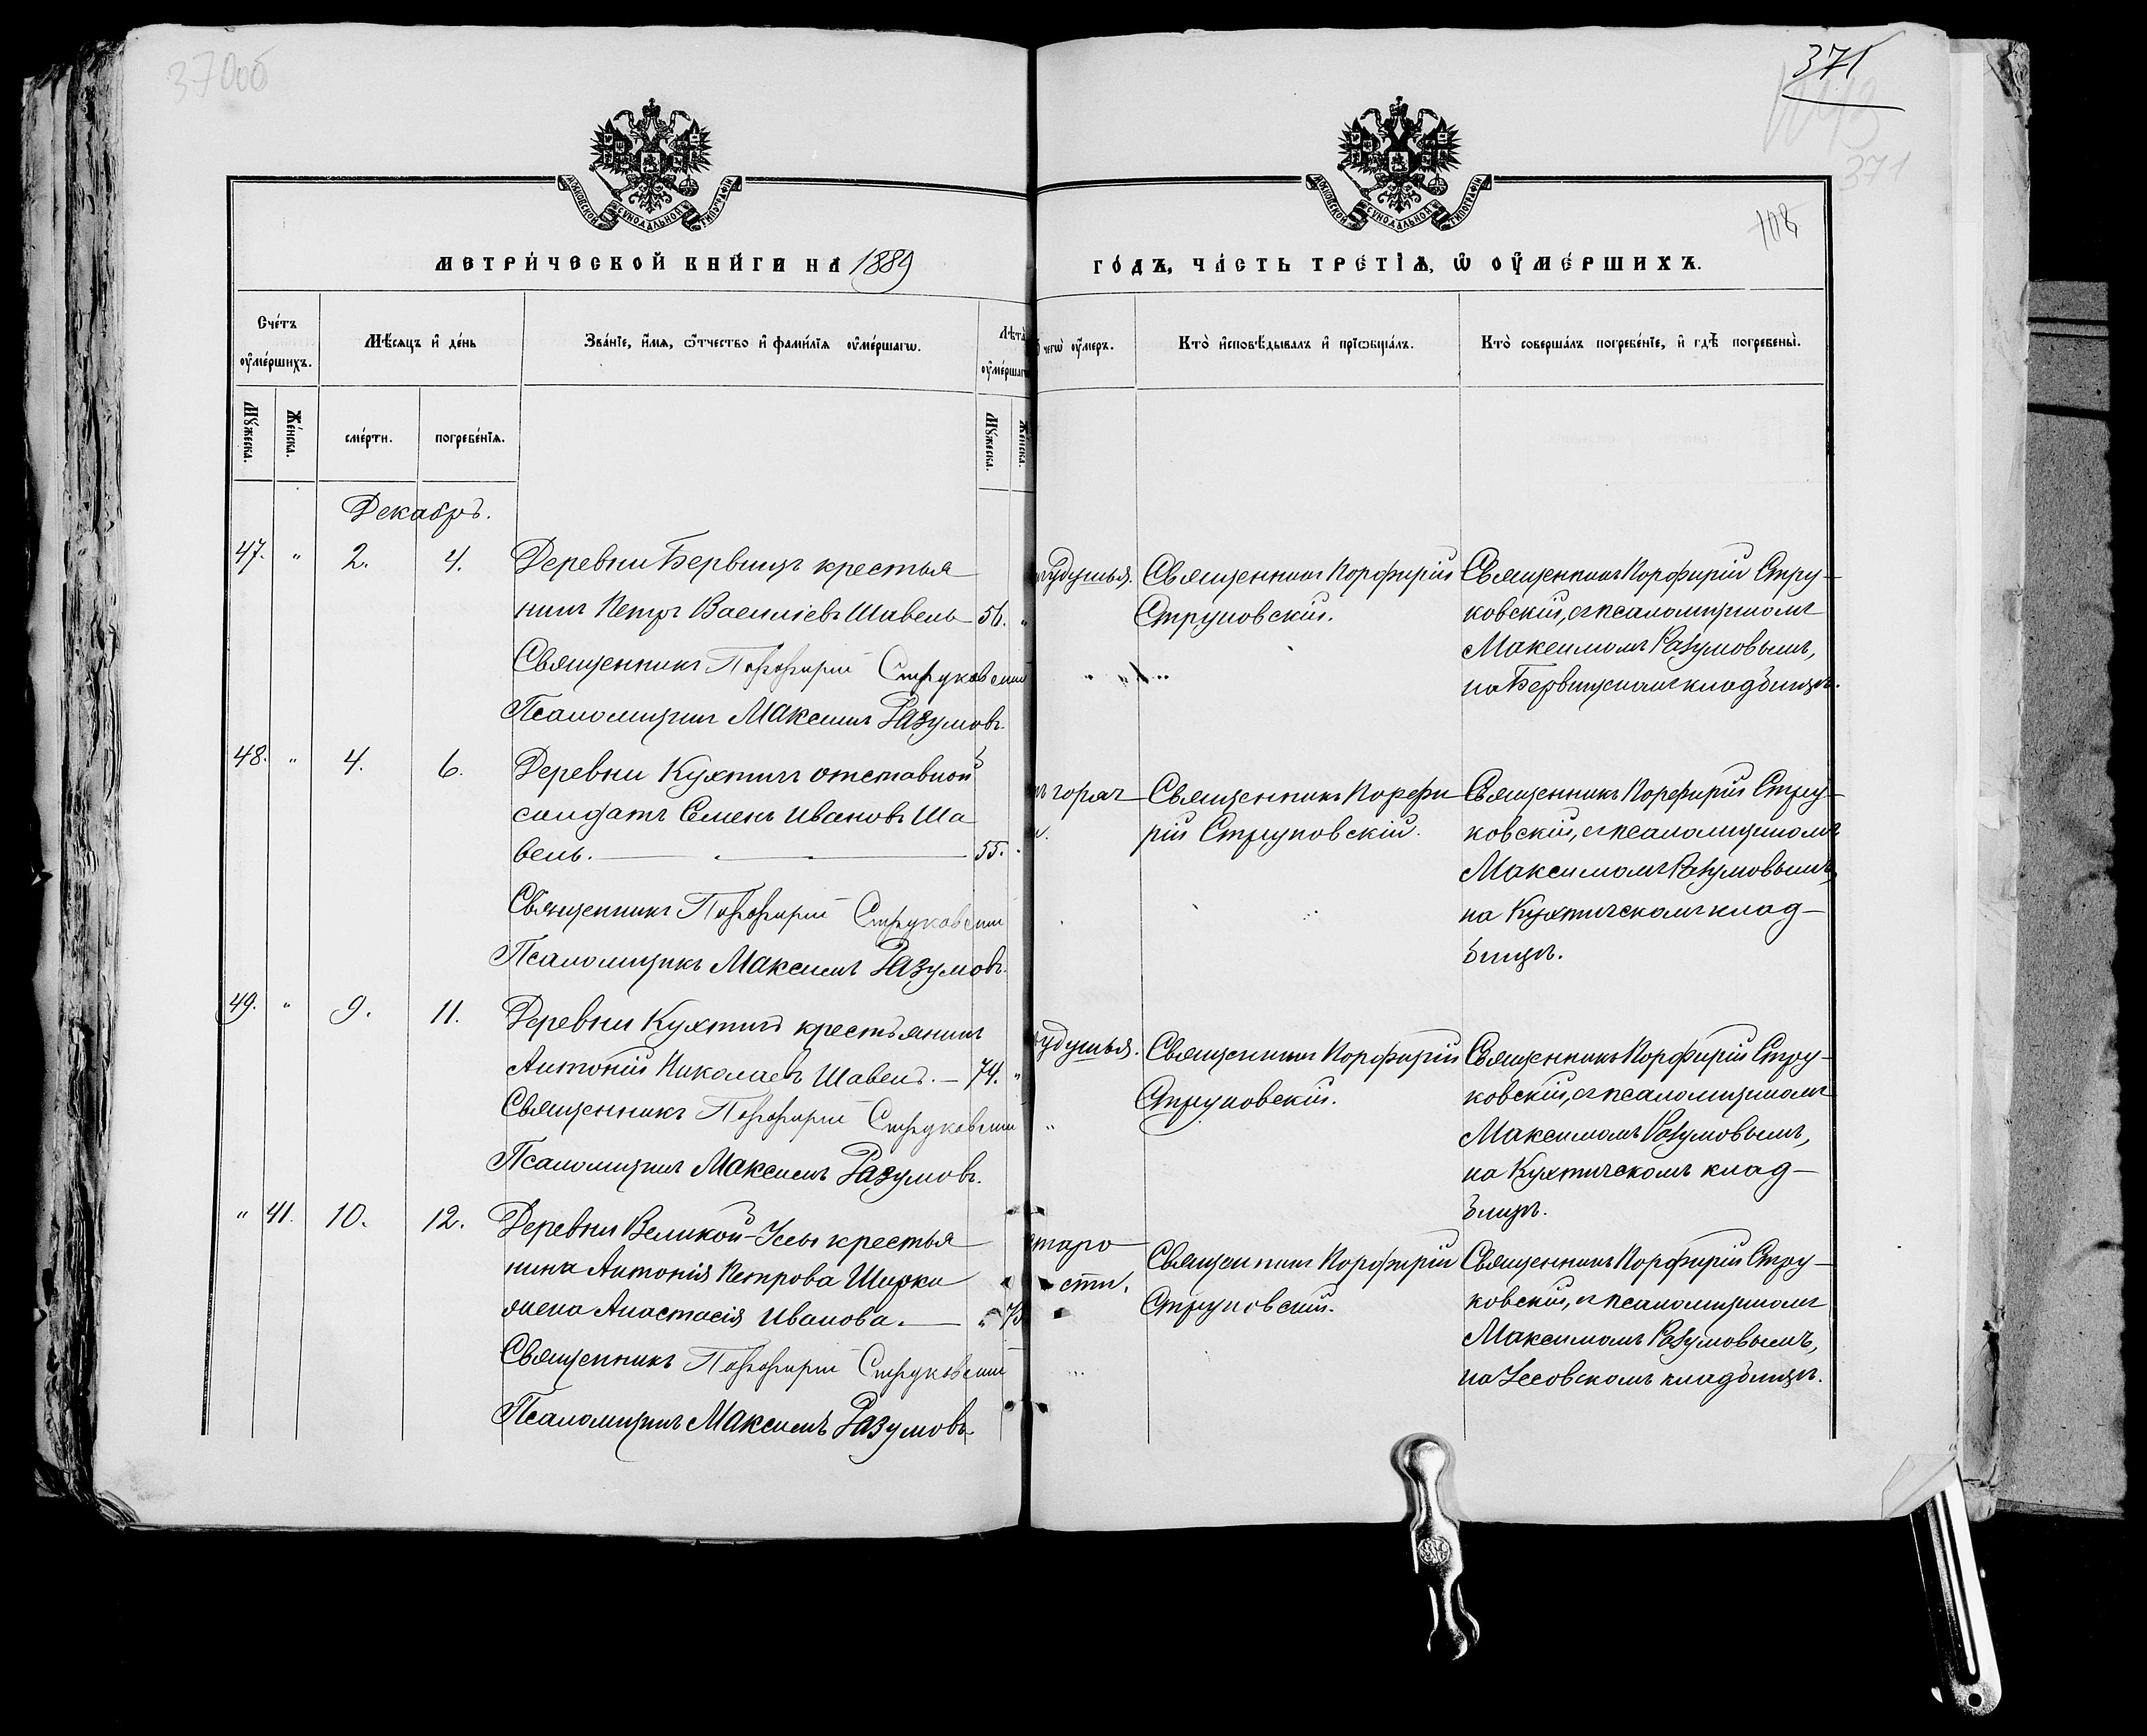 370об
371
371
108
МОСКОВСКОЙ СѴНОДАЛЬНОЙ ТИПОГРАФІИ
МОСКОВСКОЙ СѴНОДАЛЬНОЙ ТИПОГРАФІИ
МЕТРИ́ЧЕСКОЙ КНИ́ГИ НА 1889
ГО́ДЪ, ЧА́СТЬ ТРЕ́ТІѦ, Ѽ ОУ҆МЕ́РШИХЪ.
Сче́тъ оу҆ме́ршихъ.
Мѣ́сяцъ и҆ де́нь
Зва́нїе, и҆́мя, ѻ҆́тчество и҆ фами́лїя оу҆ме́ршагѡ.
Лѣта̀ оу҆ме́ршаг
ѿ чегѡ̀ оу҆́меръ.
Кто̀ и҆сповѣ́дывалъ и҆ прїѡбща́лъ.
Кто̀ соверша́лъ погребе́нїе, и҆ гдѣ̀ погребены̀.
Мꙋ́жеска.
Же́нска.
сме́рти.
погребе́нїѧ.
Мꙋ́жеска.
Же́нска.
Декабрь.
47. " 2. 4. Деревни Бервищъ крестья
нинъ Петръ Василіевъ Шавель 56. "
Священникъ Порфирій Струковскій
Псаломщикъ Максимъ Разумовъ.
удушья. Священникъ Порфирій
Струковскій.
Священникъ Порфирій Стру-
ковскій, съ псаломщикомъ
Максимомъ Разумовымъ,
на Бервищскомъ кладбищѣ.
48. " 4. 6. Деревни Кухтичъ отставной
солдатъ Семенъ Ивановъ Ша
вель. 55.
Священникъ Порфирій Струковскій
Псаломщикъ Максимъ Разумовъ.
горяч Священникъ Порфи
рій Струковскій.
Священникъ Порфирій Стру-
ковскій, съ псаломщикомъ
Максимомъ Разумовымъ,
на Кухтичскомъ клад-
бищѣ.
49. " 9. 11. Деревни Кухтичъ крестьянинъ
Антоній Николаевъ Шавель. 74. "
Священникъ Порфирій Струковскій
Псаломщикъ Максимъ Разумовъ.
удушья. Священникъ Порфирій
Струковскій.
Священникъ Порфирій Стру-
ковскій, съ псаломщикомъ
Максимомъ Разумовымъ,
на Кухтичскомъ клад-
бищѣ.
" 41. 10. 12. Деревни Великой-Усы крестья
нина Антонія Петрова Ширки
жена Анастасія Иванова. " 73
Священникъ Порфирій Струковскій
Псаломщикъ Максимъ Разумовъ.
старо
сти.
Священникъ Порфирій
Струковскій.
Священникъ Порфирій Стру-
ковскій, съ псаломщикомъ
Максимомъ Разумовымъ,
на Усовскомъ кладбищѣ.